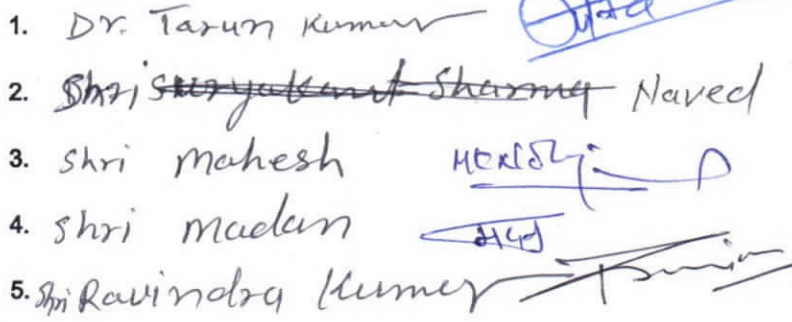 1. Dr. Tarun Kumar
2. Shri Suryakant Sharma Naved
3. Shri Mahesh
4. Shri Madan मदन
5. Shri Ravindra Kumar